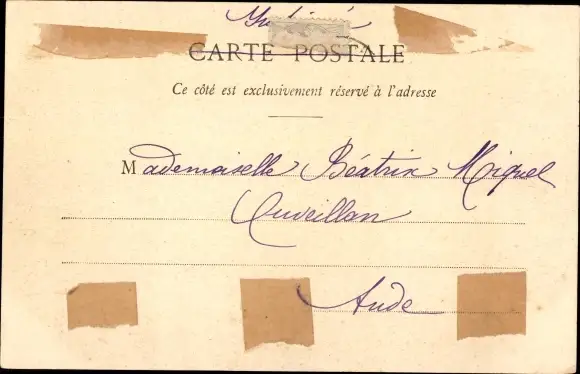 CARTE POSTALE
Ce côté est exclusivement réservé à l'adresse
Mademoiselle Béatrix Miquel
Cuveillan
Aude